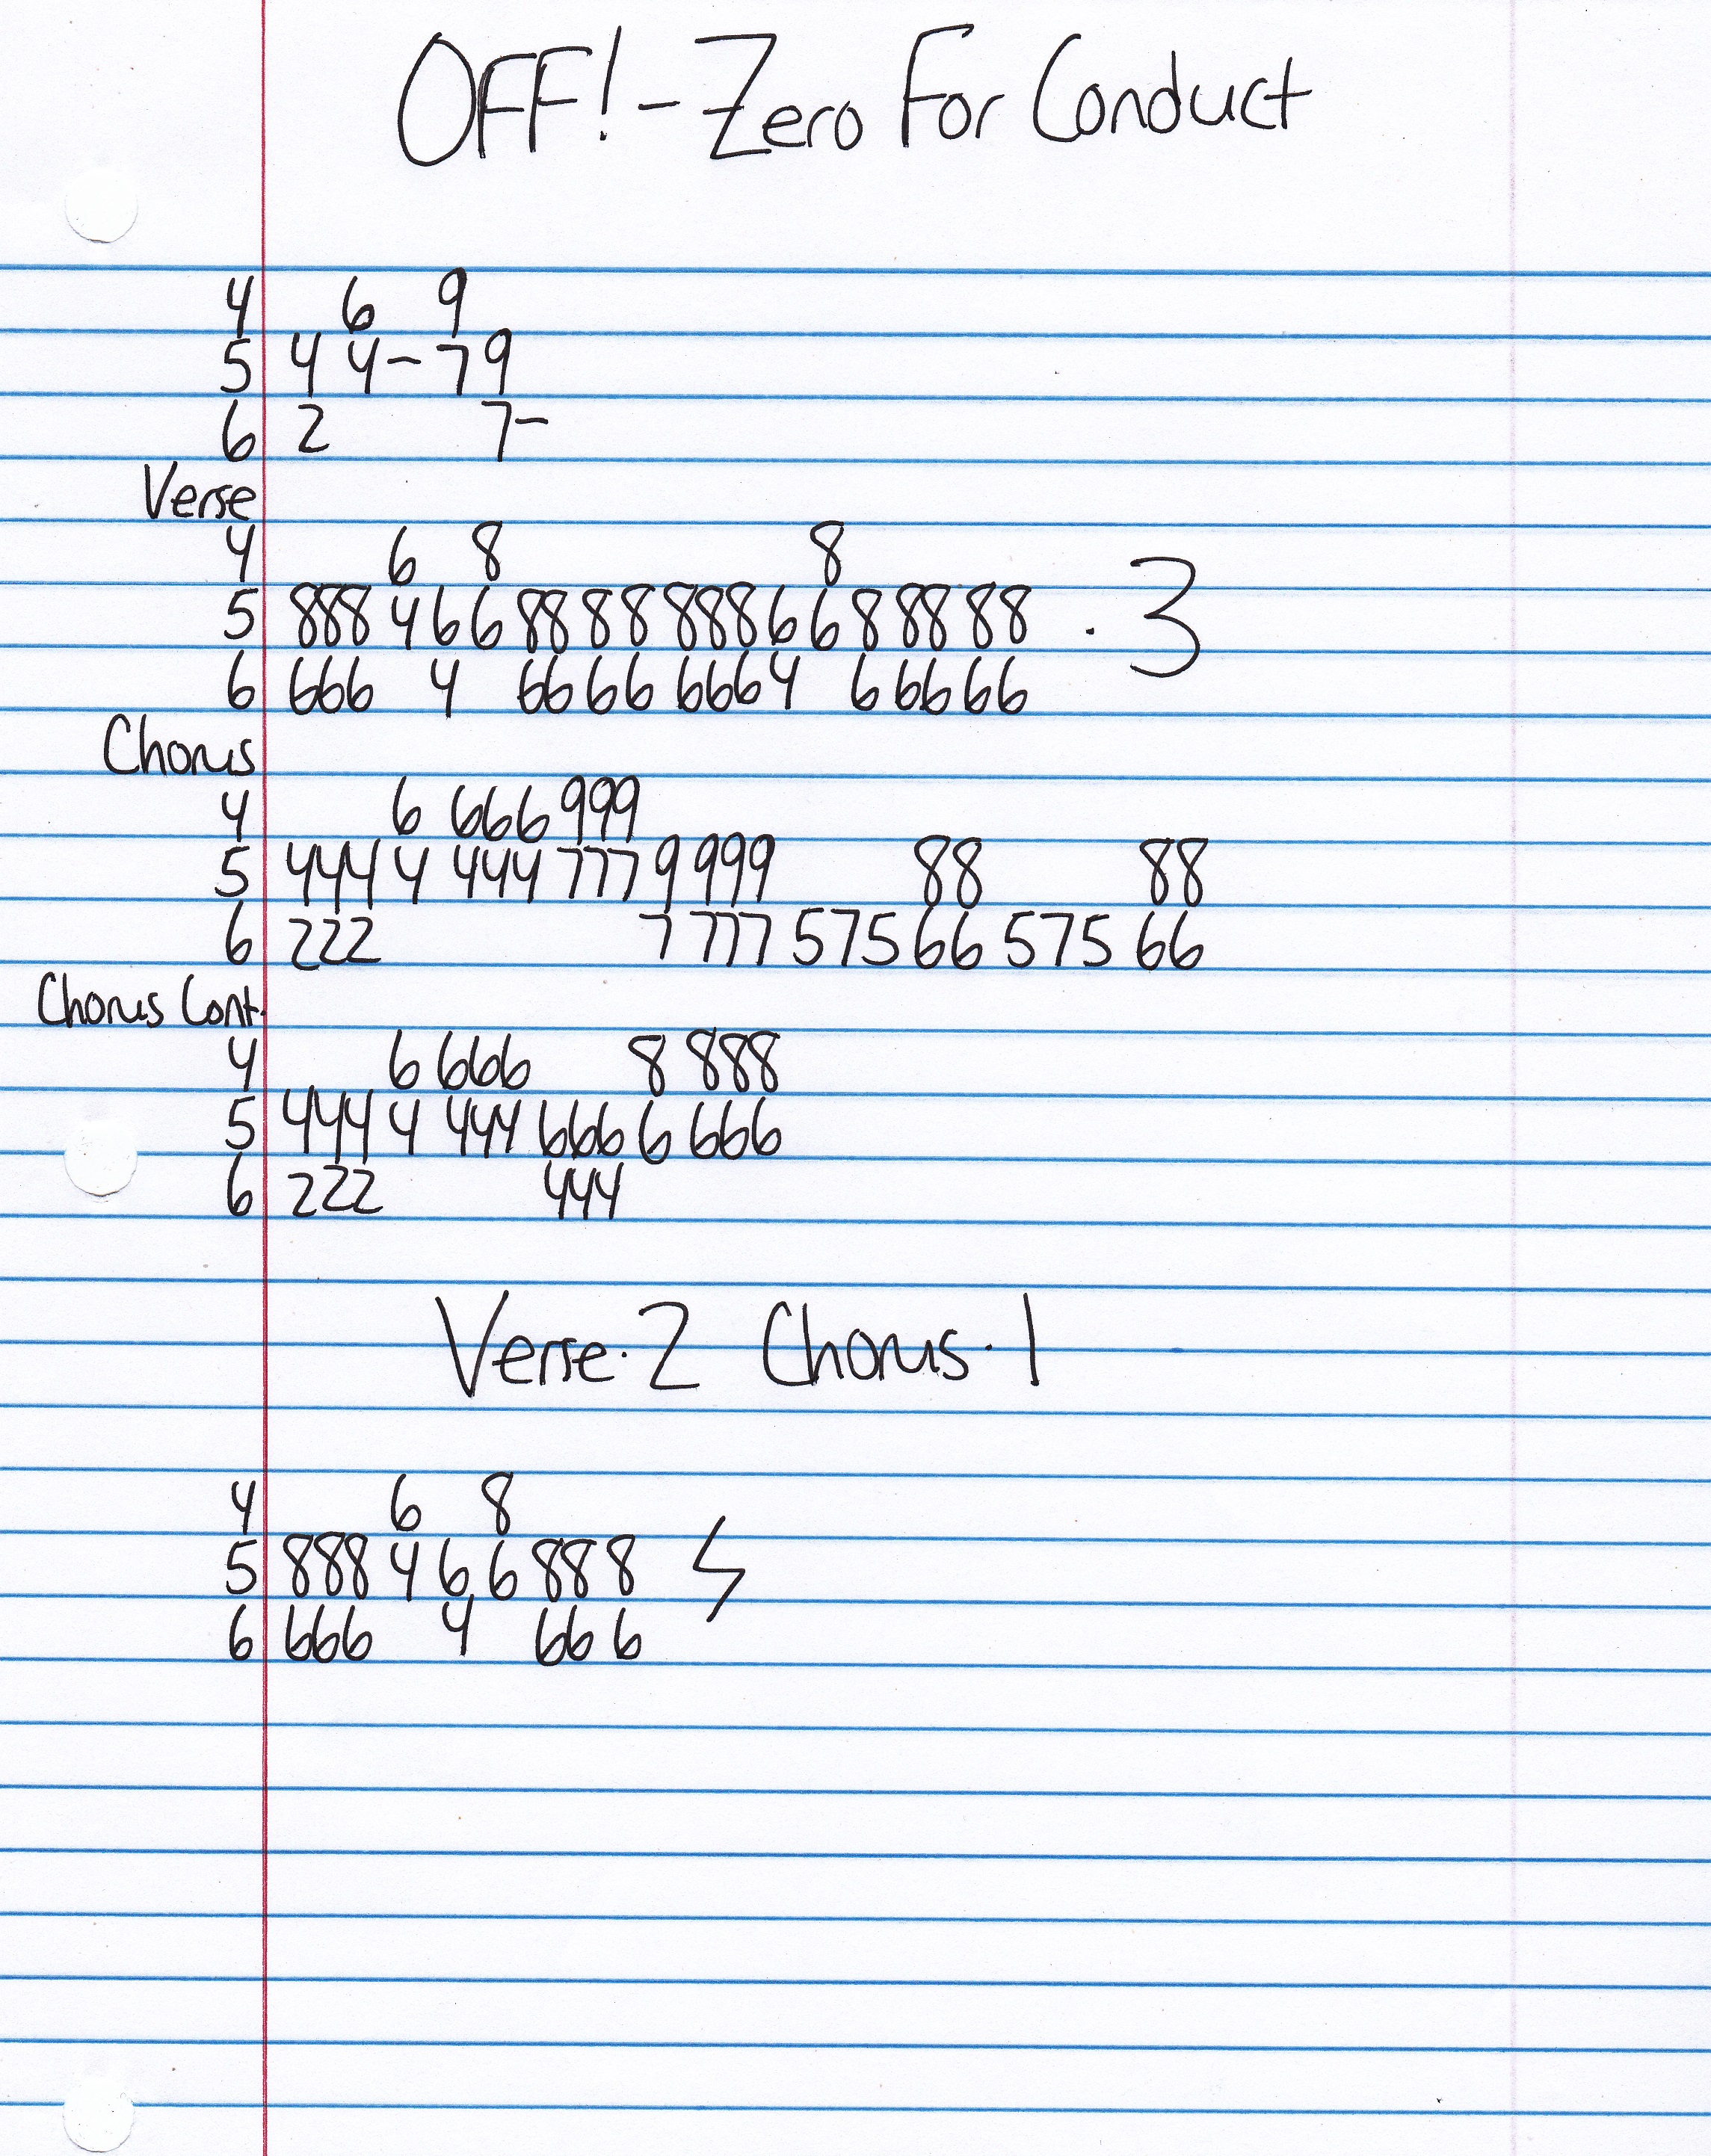 OFF! - Zero For Conduct
4 6 9
5 4 4 - 7 9
6 2 7 -
Verse
4 6 8 8
5 888 4 6 6 88 8 8 888 6 6 8 88 88 . 3
6 666 4 66 66 666 4 6 66 66
Chorus
4 6 666 999
5 444 4 444 777 9 999 88 88
6 222 7 777 575 66 575 66
Chorus Cont.
4 6 666 8 888
5 444 4 444 666 6 666
6 222 444
Verse · 2 Chorus · 1
4 6 8
5 888 4 6 6 88 8
6 666 4 66 6